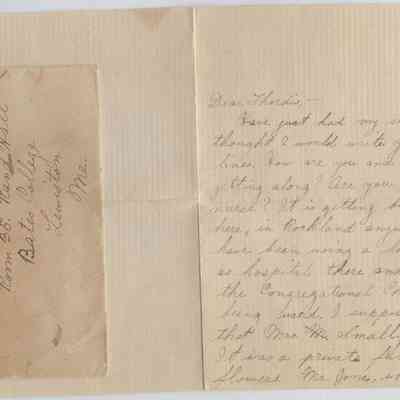 Room 35 Rand Hall
Bates College
Lewiston
Me.
Dear Thordis,—
Have just had my su
thought I would write y
lines. How are you and
getting along? Are you
nurse? It is getting b
here, in Rockland any
have been using a
as hospital there
the Congregational Ch
being used I suppos
that Mrs. Mc Smally
It was a private fu
flowers. Mr. Jones, w